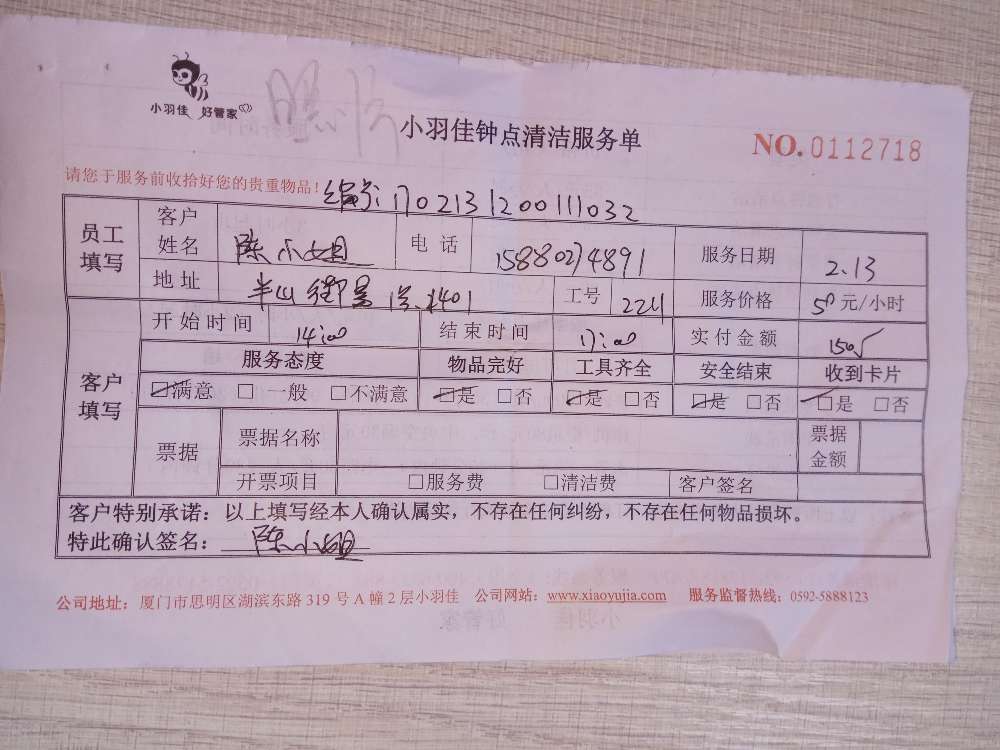 小羽佳 好管家
小羽佳钟点清洁服务单
NO.0112718
请您于服务前收拾好您的贵重物品!
编号:1702131200111032
员工填写 客户姓名 陈小姐 电话 15880274891 服务日期 2.13
地址 半山街景 1401 工号 2241 服务价格 50元/小时
客户填写 开始时间 14:00 结束时间 17:00 实付金额 150
服务态度 物品完好 工具齐全 安全结束 收到卡片
☑满意 □一般 □不满意 ☑是 □否 ☑是 □否 ☑是 □否 ☑是 □否
票据 票据名称 票据金额
开票项目 □服务费 □清洁费 客户签名
客户特别承诺:以上填写经本人确认属实,不存在任何纠纷,不存在任何物品损坏。
特此确认签名:陈小姐
公司地址:厦门市思明区湖滨东路319号A幢2层小羽佳 公司网站:www.xiaoyujia.com 服务监督热线:0592-5888123